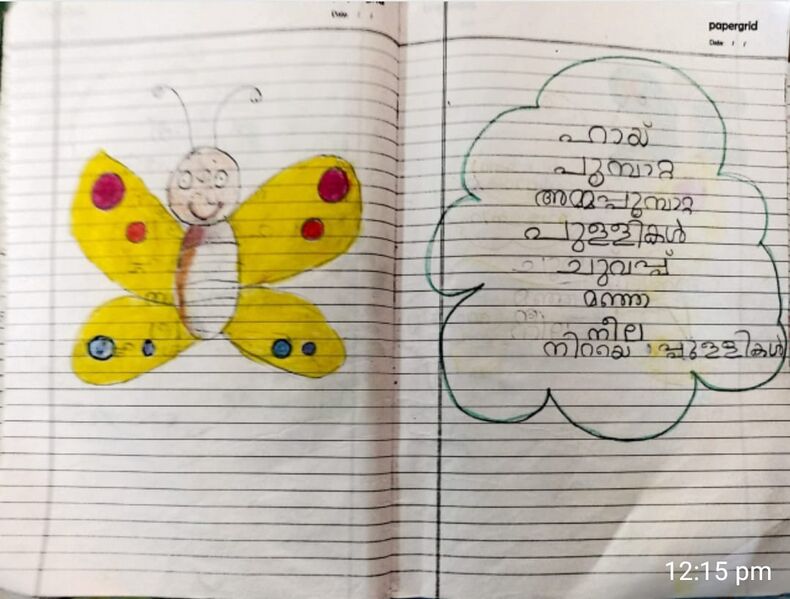 papergrid
Date: / /
ഹായ്
പൂമ്പാറ്റ
അമ്മപ്പൂമ്പാറ്റ
പുള്ളികൾ
ചുവപ്പ്
മഞ്ഞ
നീല
നിറയെ പുള്ളികൾ
12:15 pm